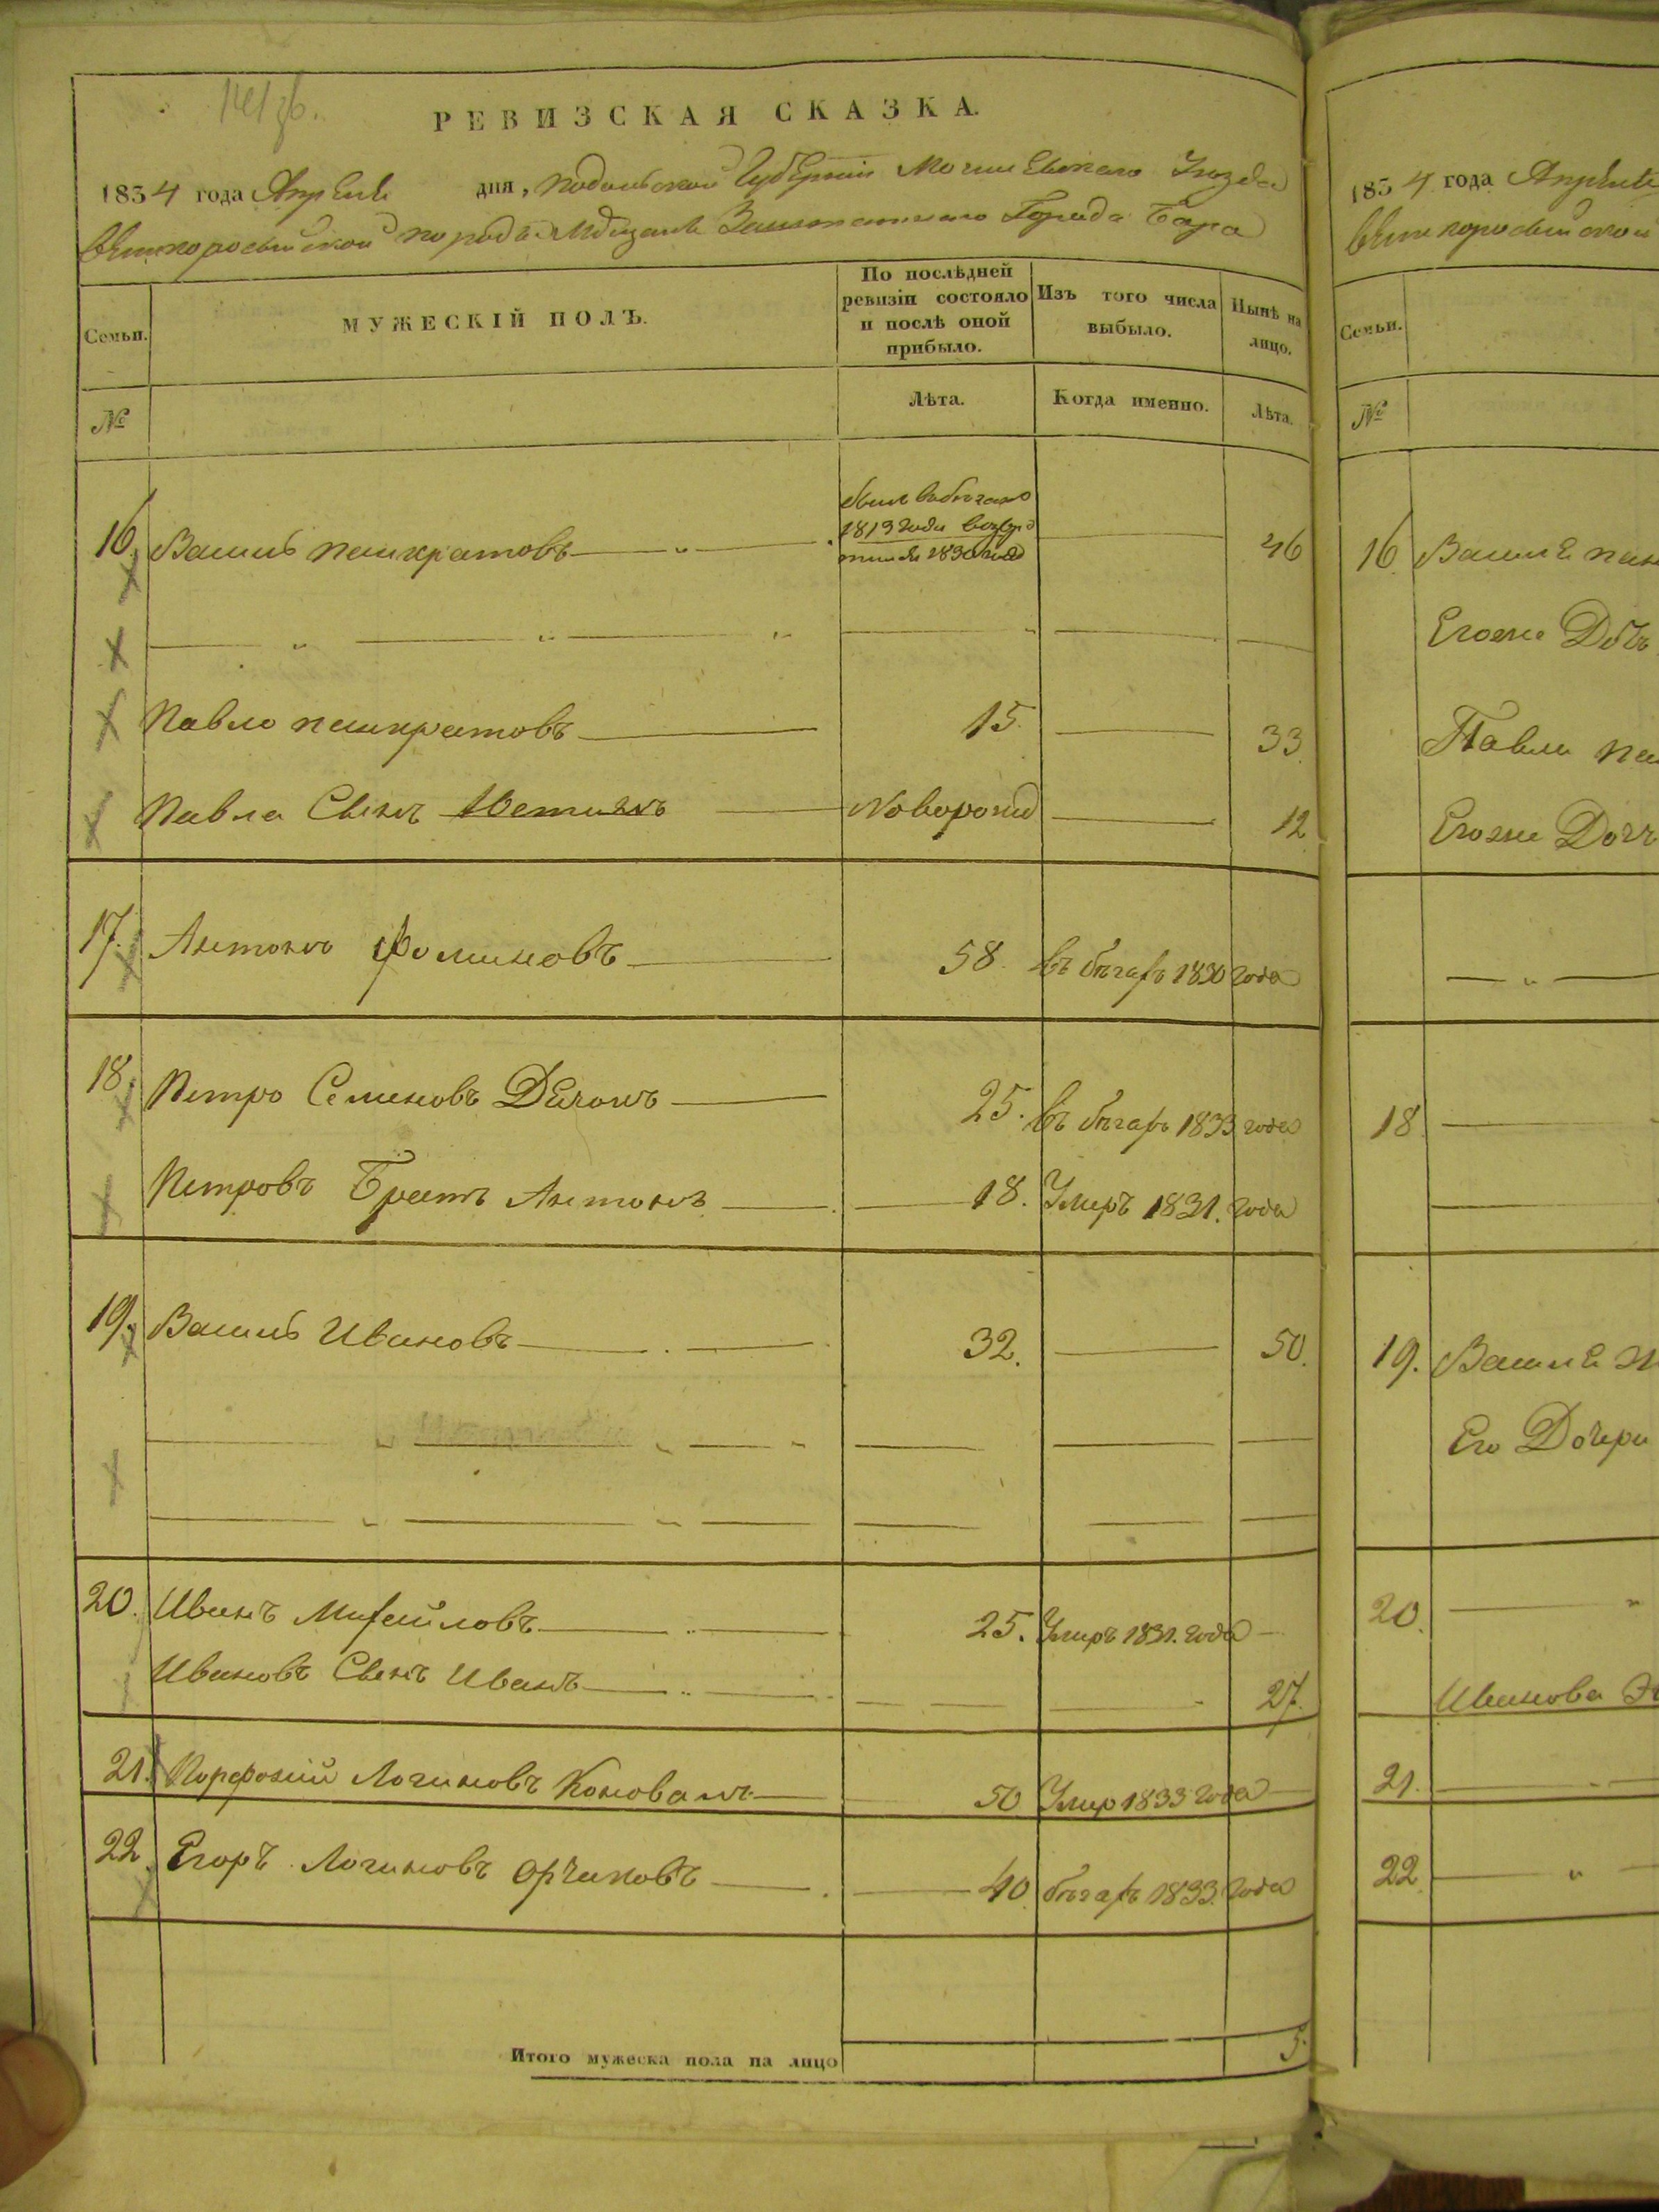 РЕВИЗСКАЯ СКАЗКА.
1834 года Апреля дня, Подольской Губернии Могилевскаго Уезда
Великоросыйской породы Мещанъ Заштатнаго Города Бара
Семьи.
МУЖЕСКІЙ ПОЛЪ.
По послѣдней ревизіи состояло и послѣ оной прибыло.
Изъ того числа выбыло.
Нынѣ на лицо.
№
Лѣта.
Когда именно.
Лѣта.
былъ в бегахъ
1813 года
1830 года
16. Василь Панкратовъ 46
Павло Панкратовъ 15. 33.
Павла Сынъ Новорожд 12
17. Антонъ Фоминовъ 58. въ бѣгахъ 1830 года
18. Петро Семеновъ 25. въ бѣгахъ 1833 года
Петровъ Братъ Антонъ 18. Умеръ 1831. года
19. Василь Ивановъ 32. 50.
20. Иванъ Михайловъ 25. Умеръ 1831. года
Ивановъ Сынъ Иванъ 27.
21. Порфирий Логиновъ Коновалъ 50 Умер 1833 года
22. Егоръ Логиновъ 40 бѣгахъ 1833. года
Итого мужеска пола на лицо 5.
1834 года Апреля
Великоросыйской
Семьи.
№
16. Василя Пан
Егоже Дочь
Павла Пан
Егоже Доч
18
19. Василя
Его Дочери
20.
Иванова
21.
22.